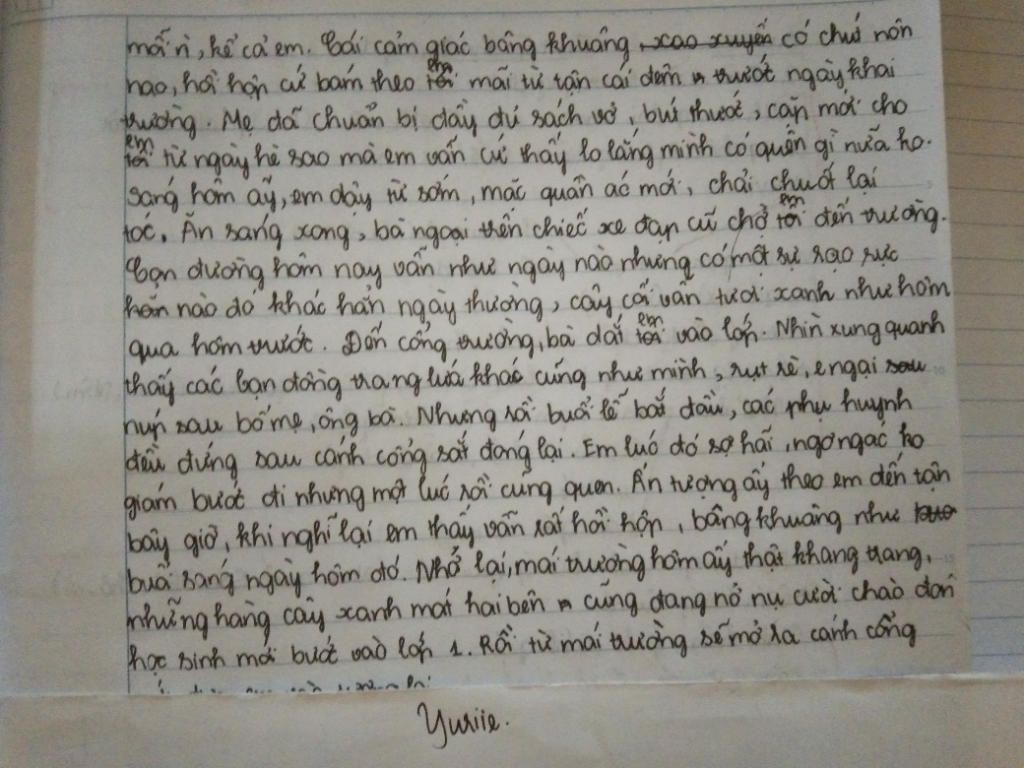 mẩn, kể cả em. Cái cảm giác bâng khuâng, xao xuyến có chút nôn
nao, hồi hộp cứ bám theo em tôi mãi từ tận cái đêm trước ngày khai
trường. Mẹ đã chuẩn bị đầy đủ sách vở, bút thước, cặp mới cho
em tôi từ ngày hè sao mà em vẫn cứ thấy lo lắng mình có quên gì nữa ko.
Sáng hôm ấy, em dậy từ sớm, mặc quần áo mới, chải chuốt lại
tóc. Ăn sáng xong, bà ngoại trên chiếc xe đạp cũ chở em tôi đến trường.
Con đường hôm nay vẫn như ngày nào nhưng có một sự rạo rực
hơn nào đó khác hẳn ngày thường, cây cối vẫn tươi xanh như hôm
qua hôm trước. Đến cổng trường, bà dắt em tôi vào lớp. Nhìn xung quanh
thấy các bạn đồng trang lứa khác cũng như mình, rụt rè, e ngại sau
núp sau bố mẹ, ông bà. Nhưng rồi buổi lễ bắt đầu, các phụ huynh
đều đứng sau cánh cổng sắt đóng lại. Em lúc đó sợ hãi, ngơ ngác ko
giám bước đi nhưng một lúc rồi cũng quen. Ấn tượng ấy theo em đến tận
bây giờ, khi nghĩ lại em thấy vẫn rất hồi hộp, bâng khuâng như
buổi sáng ngày hôm đó. Nhớ lại, mái trường hôm ấy thật khang trang,
những hàng cây xanh mát hai bên cũng đang nở nụ cười chào đón
học sinh mới bước vào lớp 1. Rồi từ mái trường sẽ mở ra cánh cổng
Yuriie.